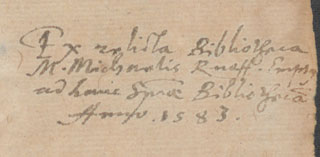 Ex relicta Bibliotheca
M. Michaelis Knoff.
ad hanc Bibliothecā
Anno . 1583.